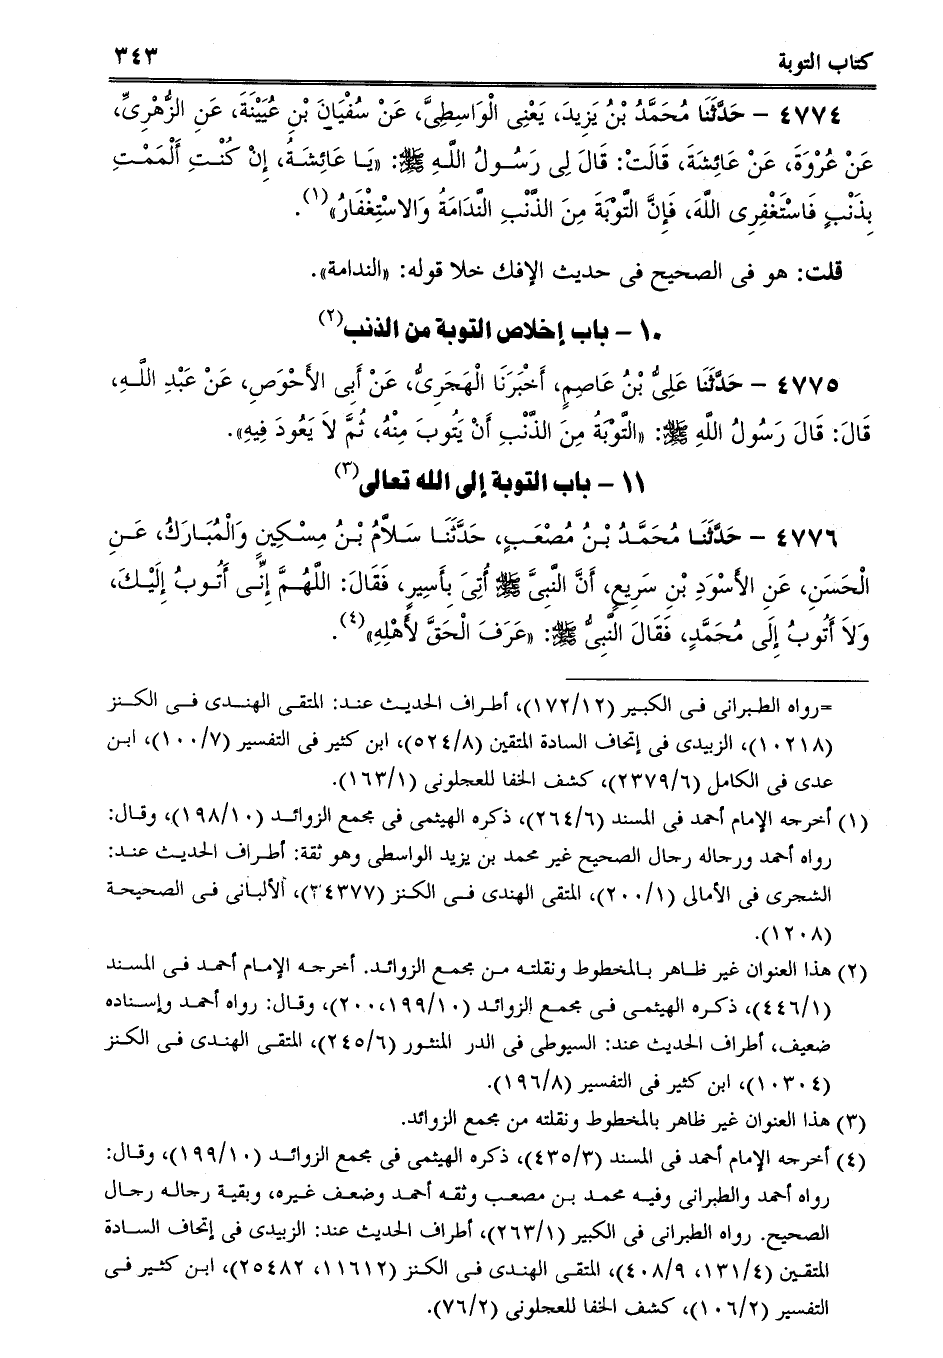 كتاب التوبة ٣٤٣
٤٧٧٤ – حَدَّثَنَا مُحَمَّدُ بْنُ يَزِيدَ، يَعْنِى الْوَاسِطِىَّ، عَنْ سُفْيَانَ بْنِ عُيَيْنَةَ، عَنِ الزُّهْرِىِّ،
عَنْ عُرْوَةَ، عَنْ عَائِشَةَ، قَالَتْ: قَالَ لِى رَسُولُ اللَّهِ ﷺ: «يَا عَائِشَةُ، إِنْ كُنْتِ أَلْمَمْتِ
بِذَنْبٍ فَاسْتَغْفِرِى اللَّهَ، فَإِنَّ التَّوْبَةَ مِنَ الذَّنْبِ النَّدَامَةُ وَالاسْتِغْفَارُ»(١).
قلت: هو فى الصحيح فى حديث الإفك خلا قوله: «الندامة».
١٠ – باب إخلاص التوبة من الذنب(٢)
٤٧٧٥ – حَدَّثَنَا عَلِىُّ بْنُ عَاصِمٍ، أَخْبَرَنَا الْهَجَرِىُّ، عَنْ أَبِى الأَحْوَصِ، عَنْ عَبْدِ اللَّهِ،
قَالَ: قَالَ رَسُولُ اللَّهِ ﷺ: «التَّوْبَةُ مِنَ الذَّنْبِ أَنْ يَتُوبَ مِنْهُ، ثُمَّ لاَ يَعُودَ فِيهِ».
١١ – باب التوبة إلى الله تعالى(٣)
٤٧٧٦ – حَدَّثَنَا مُحَمَّدُ بْنُ مُصْعَبٍ، حَدَّثَنَا سَلاَّمُ بْنُ مِسْكِينٍ وَالْمُبَارَكُ، عَنِ
الْحَسَنِ، عَنِ الأَسْوَدِ بْنِ سَرِيعٍ، أَنَّ النَّبِىَّ ﷺ أُتِىَ بِأَسِيرٍ، فَقَالَ: اللَّهُمَّ إِنِّى أَتُوبُ إِلَيْكَ،
وَلاَ أَتُوبُ إِلَى مُحَمَّدٍ، فَقَالَ النَّبِىُّ ﷺ: «عَرَفَ الْحَقَّ لأَهْلِهِ»(٤).
=رواه الطبرانى فى الكبير (١٧٢/١٢)، أطراف الحديث عند: المتقى الهندى فى الكنز
(١٠٢١٨)، الزبيدى فى إتحاف السادة المتقين (٥٢٤/٨)، ابن كثير فى التفسير (١٠٠/٧)، ابن
عدى فى الكامل (٢٣٧٩/٦)، كشف الخفا للعجلونى (١٦٣/١).
(١) أخرجه الإمام أحمد فى المسند (٢٦٤/٦)، ذكره الهيثمى فى مجمع الزوائد (١٩٨/١٠)، وقال:
رواه أحمد ورجاله رجال الصحيح غير محمد بن يزيد الواسطى وهو ثقة: أطراف الحديث عند:
الشجرى فى الأمالى (٢٠٠/١)، المتقى الهندى فى الكنز (٣٤٣٧٧)، الألبانى فى الصحيحة
(١٢٠٨).
(٢) هذا العنوان غير ظاهر بالمخطوط ونقلته من مجمع الزوائد. أخرجه الإمام أحمد فى المسند
(٤٤٦/١)، ذكره الهيثمى فى مجمع الزوائد (١٩٩/١٠، ٢٠٠)، وقال: رواه أحمد وإسناده
ضعيف، أطراف الحديث عند: السيوطى فى الدر المنثور (٢٤٥/٦)، المتقى الهندى فى الكنز
(١٠٣٠٤)، ابن كثير فى التفسير (١٩٦/٨).
(٣) هذا العنوان غير ظاهر بالمخطوط ونقلته من مجمع الزوائد.
(٤) أخرجه الإمام أحمد فى المسند (٤٣٥/٣)، ذكره الهيثمى فى مجمع الزوائد (١٩٩/١٠)، وقال:
رواه أحمد والطبرانى وفيه محمد بن مصعب وثقه أحمد وضعف غيره، وبقية رجاله رجال
الصحيح. رواه الطبرانى فى الكبير (٢٦٣/١)، أطراف الحديث عند: الزبيدى فى إتحاف السادة
المتقين (١٣١/٤، ٤٠٨/٩)، المتقى الهندى فى الكنز (١١٦١٢، ٢٥٤٨٢)، ابن كثير فى
التفسير (١٠٦/٢)، كشف الخفا للعجلونى (٧٦/٢).